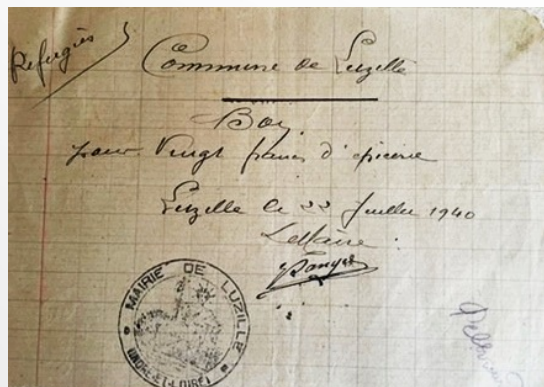 Refugiés
Commune de Luzillé
Bon
pour Vingt francs d'épicerie
Luzillé le 22 Juillet 1940
Le Maire
MAIRIE DE LUZILLÉ
(INDRE-ET-LOIRE)